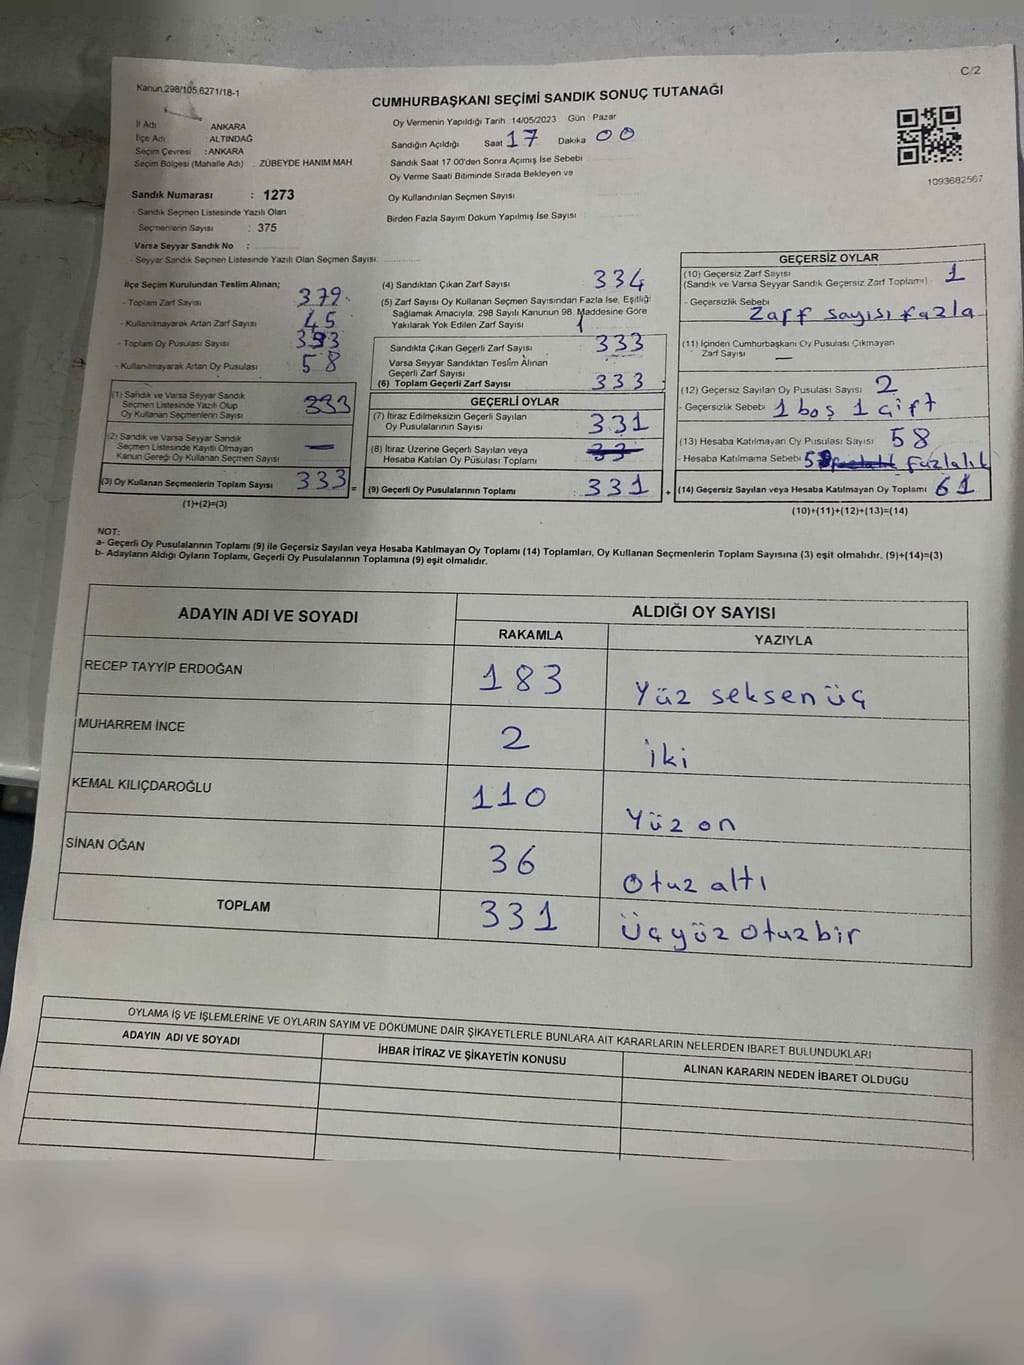 C/2
Kanun 298/105,6271/18-1
CUMHURBAŞKANI SEÇİMİ SANDIK SONUÇ TUTANAĞI
İl Adı : ANKARA
İlçe Adı : ALTINDAĞ
Seçim Çevresi : ANKARA
Seçim Bölgesi (Mahalle Adı) : ZÜBEYDE HANIM MAH
Oy Vermenin Yapıldığı Tarih :14/05/2023 Gün Pazar
Sandığın Açıldığı Saat 17 Dakika 00
Sandık Saat 17 00'den Sonra Açımış İse Sebebi
Oy Verme Saati Bitiminde Sırada Bekleyen ve
Oy Kullandırılan Seçmen Sayısı
Birden Fazla Sayım Döküm Yapılmış İse Sayısı
1093682567
Sandık Numarası : 1273
- Sandık Seçmen Listesinde Yazılı Olan
Seçmenlerin Sayısı : 375
Varsa Seyyar Sandık No :
- Seyyar Sandık Seçmen Listesinde Yazılı Olan Seçmen Sayısı:
İlçe Seçim Kurulundan Teslim Alınan;
- Toplam Zarf Sayısı 379
- Kullanılmayarak Artan Zarf Sayısı 45
- Toplam Oy Pusulası Sayısı 393
- Kullanılmayarak Artan Oy Pusulası 58
(1) Sandık ve Varsa Seyyar Sandık
Seçmen Listesinde Yazılı Olup
Oy Kullanan Seçmenlerin Sayısı 333
(2) Sandık ve Varsa Seyyar Sandık
Seçmen Listesinde Kayıtlı Olmayan
Kanun Gereği Oy Kullanan Seçmen Sayısı —
(3) Oy Kullanan Seçmenlerin Toplam Sayısı 333 =
(1)+(2)=(3)
(4) Sandıktan Çıkan Zarf Sayısı 334
(5) Zarf Sayısı Oy Kullanan Seçmen Sayısından Fazla İse, Eşitliği
Sağlamak Amacıyla, 298 Sayılı Kanunun 98. Maddesine Göre
Yakılarak Yok Edilen Zarf Sayısı 1
Sandıkta Çıkan Geçerli Zarf Sayısı 333
Varsa Seyyar Sandıktan Teslim Alınan
Geçerli Zarf Sayısı
(6) Toplam Geçerli Zarf Sayısı 333
GEÇERLİ OYLAR
(7) İtiraz Edilmeksizin Geçerli Sayılan
Oy Pusulalarının Sayısı 331
(8) İtiraz Üzerine Geçerli Sayılan veya
Hesaba Katılan Oy Pusulası Toplamı
(9) Geçerli Oy Pusulalarının Toplamı : 331 +
GEÇERSİZ OYLAR
(10) Geçersiz Zarf Sayısı
(Sandık ve Varsa Seyyar Sandık Geçersiz Zarf Toplamı) 1
- Geçersizlik Sebebi
Zarf sayısı fazla
(11) İçinden Cumhurbaşkanı Oy Pusulası Çıkmayan
Zarf Sayısı —
(12) Geçersiz Sayılan Oy Pusulası Sayısı 2
- Geçersizlik Sebebi 1 boş 1 çift
(13) Hesaba Katılmayan Oy Pusulası Sayısı 58
- Hesaba Katılmama Sebebi 58 fazlalık
(14) Geçersiz Sayılan veya Hesaba Katılmayan Oy Toplamı 61
(10)+(11)+(12)+(13)=(14)
NOT:
a- Geçerli Oy Pusulalarının Toplamı (9) ile Geçersiz Sayılan veya Hesaba Katılmayan Oy Toplamı (14) Toplamları, Oy Kullanan Seçmenlerin Toplam Sayısına (3) eşit olmalıdır. (9)+(14)=(3)
b- Adayların Aldığı Oyların Toplamı, Geçerli Oy Pusulalarının Toplamına (9) eşit olmalıdır.
ADAYIN ADI VE SOYADI ALDIĞI OY SAYISI
RAKAMLA YAZIYLA
RECEP TAYYİP ERDOĞAN 183 Yüz seksen üç
MUHARREM İNCE 2 iki
KEMAL KILIÇDAROĞLU 110 Yüz on
SİNAN OĞAN 36 Otuz altı
TOPLAM 331 Üçyüz Otuzbir
OYLAMA İŞ VE İŞLEMLERİNE VE OYLARIN SAYIM VE DÖKÜMÜNE DAİR ŞİKAYETLERLE BUNLARA AİT KARARLARIN NELERDEN İBARET BULUNDUKLARI
ADAYIN ADI VE SOYADI İHBAR İTİRAZ VE ŞİKAYETİN KONUSU ALINAN KARARIN NEDEN İBARET OLDUĞU